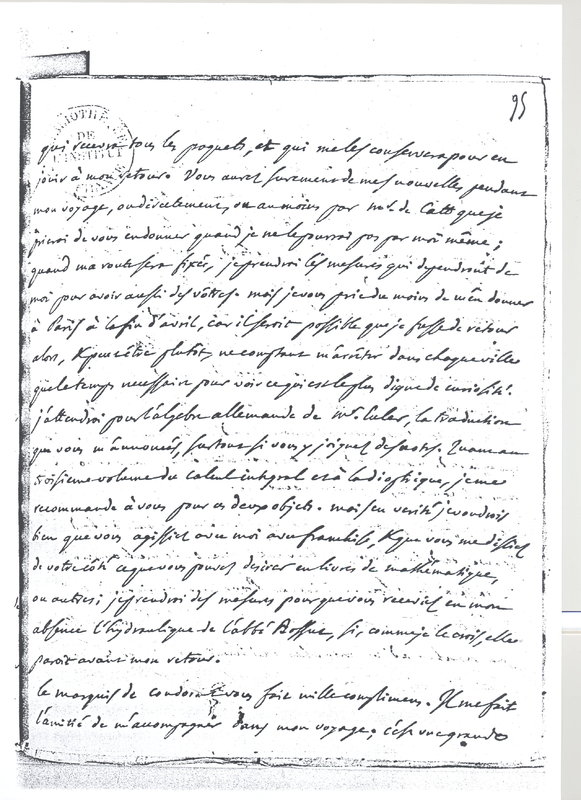 95
BIBLIOTHEQUE
DE
L'INSTITUT
qui recevra tous les paquets, et qui me les conservera pour en
jouir à mon retour. Vous aurez surement de mes nouvelles, pendant
mon voyage, ou directement, ou au moins par Mr. de Catt que je
prierai de vous en donner quand je ne le pourrai pas par moi même;
quand ma route sera fixée, je prendrai les mesures qui dependront de
moi pour avoir aussi des vôtres. mais je vous prie du moins de m'en donner
à Paris à la fin d'avril, car il seroit possible que je fusse de retour
alors, & peutêtre plutôt, ne comptant m'arrêter dans chaque ville
que le tems necessaire pour voir ce qui est le plus digne de curiosité.
j'attendrai pour l'algebre allemande de Mr. Euler, la traduction
que vous m'annoncés, surtout si vous y joignes des notes. Quant au
troisieme volume du calcul integral et à la dioptrique, je me
recommande à vous pour ces deux objets. mais en verité je voudrois
bien que vous agissiez avec moi avec franchise, & que vous me dissiez
de votre côté ce que vous pouvez desirer en livres de mathématique,
ou autres; je prendrai des mesures pour que vous receviez en mon
absence l'hydraulique de l'abbé Bossut, si, comme je le crois, elle
paroit avant mon retour.
le marquis de Condorcet vous fait mille complimens. Il me fait
l'amitié de m'accompagner dans mon voyage; c'est une grande